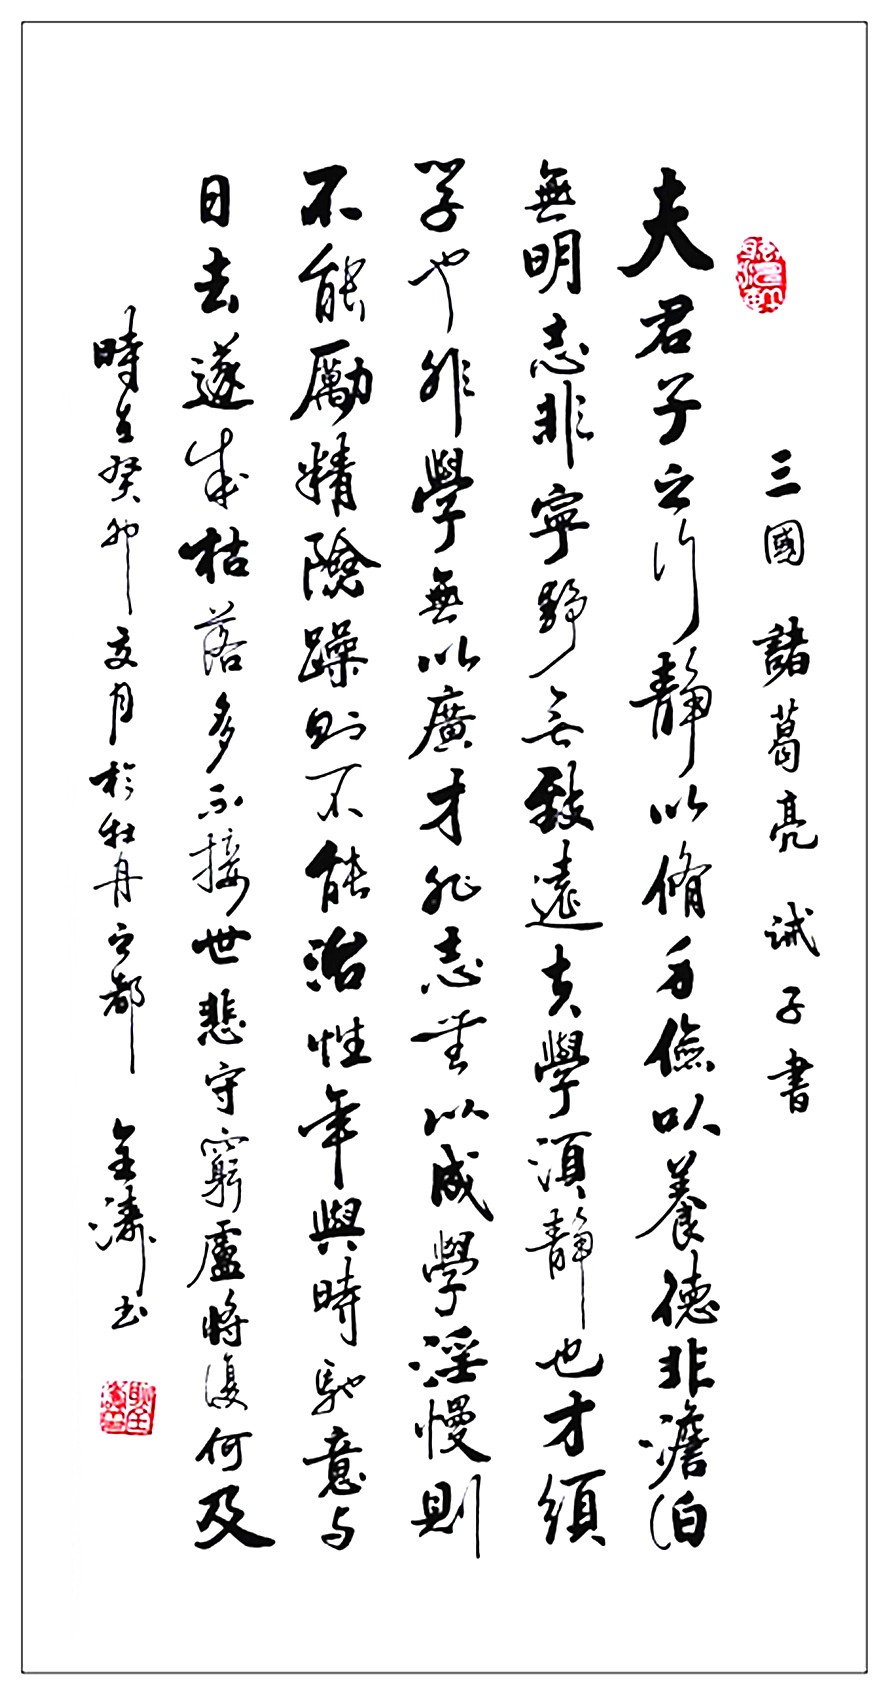 三國 諸葛亮 誡子書
夫君子之行靜以脩身儉以養德非澹泊
無明志非寧靜無致遠夫學須靜也才須
學也非學無以廣才非志無以成學淫慢則
不能勵精險躁則不能治性年與時馳意与
日去遂成枯落多不接世悲守窮廬將復何及
時在癸卯文月於牡丹之都 金濤書